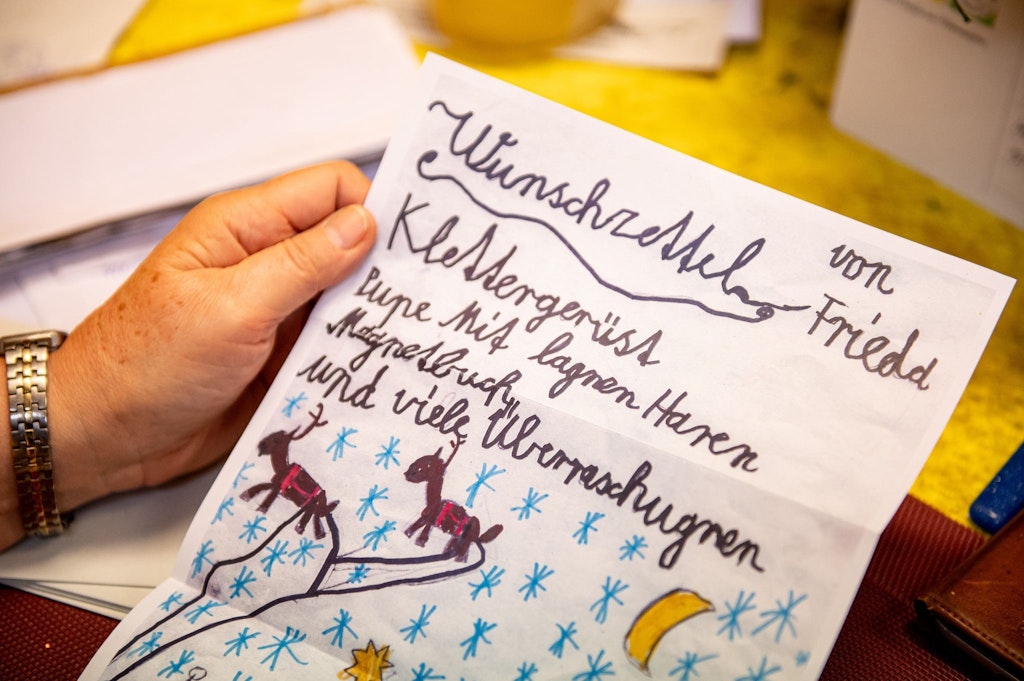 Wunschzettel von
Friedd
Klettergerüst
Pupe Mit lagnen Haren
Magnetbuch,
und viele Überraschugnen